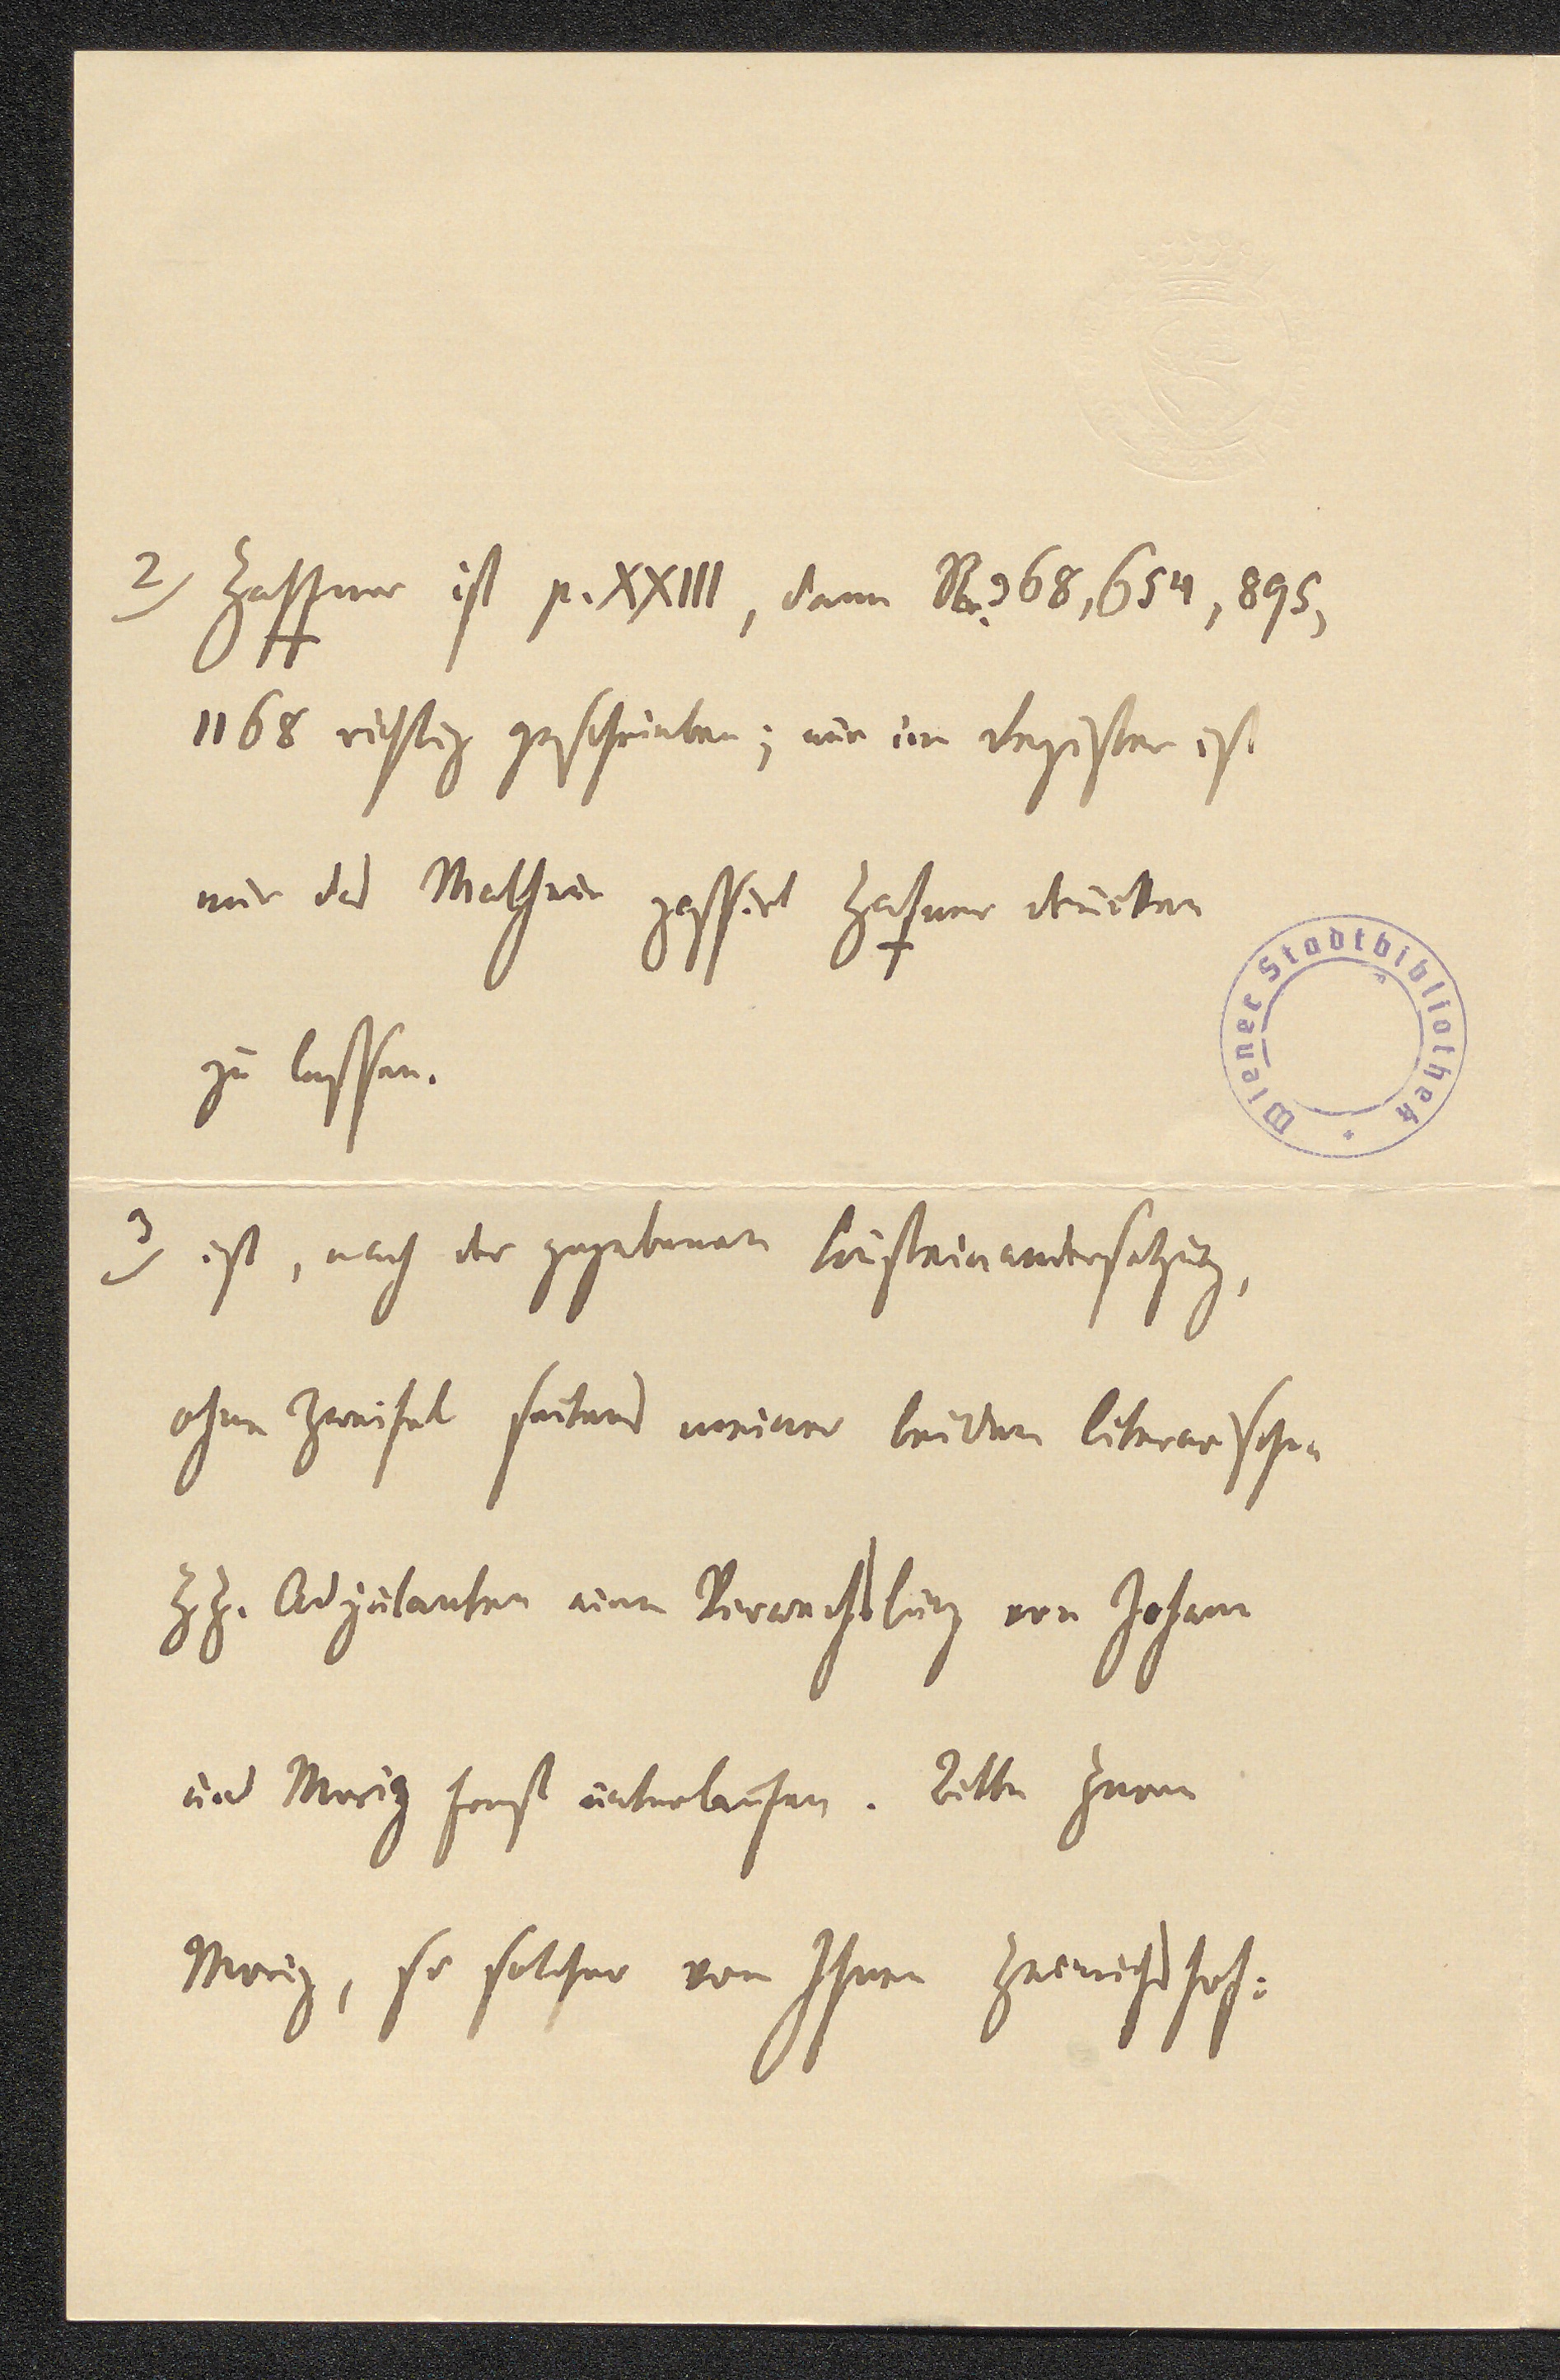 2) Haffner ist p. XXIII, dann Nr. 368, 654, 895,
1168 richtig geschrieben; nur im Register ist
mir das Malheur passirt Hafner drucken
zu lassen.
3) ist, nach der gegebenen Auseinandersetzung,
ohne Zweifel seitens meiner beiden literarischen
H.H. Adjutanten eine Verwechslung von Johann
und Moriz Horst unterlaufen. Bitte Herrn
Moriz, so solcher von Ihnen
Wiener Stadtbibliothek